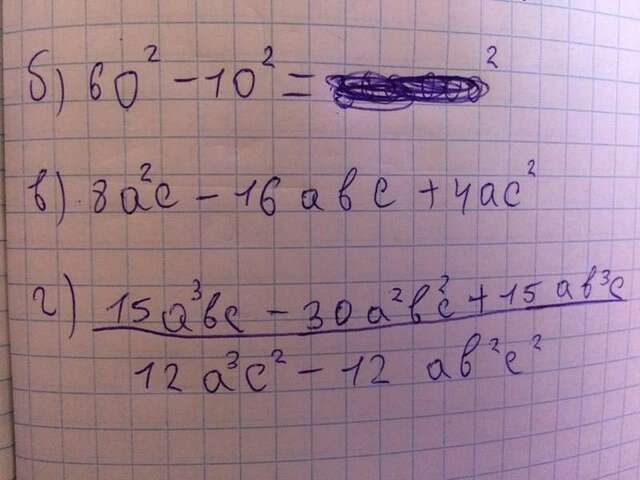 б) 60² - 10² = ²
в) 8a²c - 16 abc + 4ac²
г) 15a³bc - 30a²b²c + 15ab³c
12a³c² - 12 ab²c²